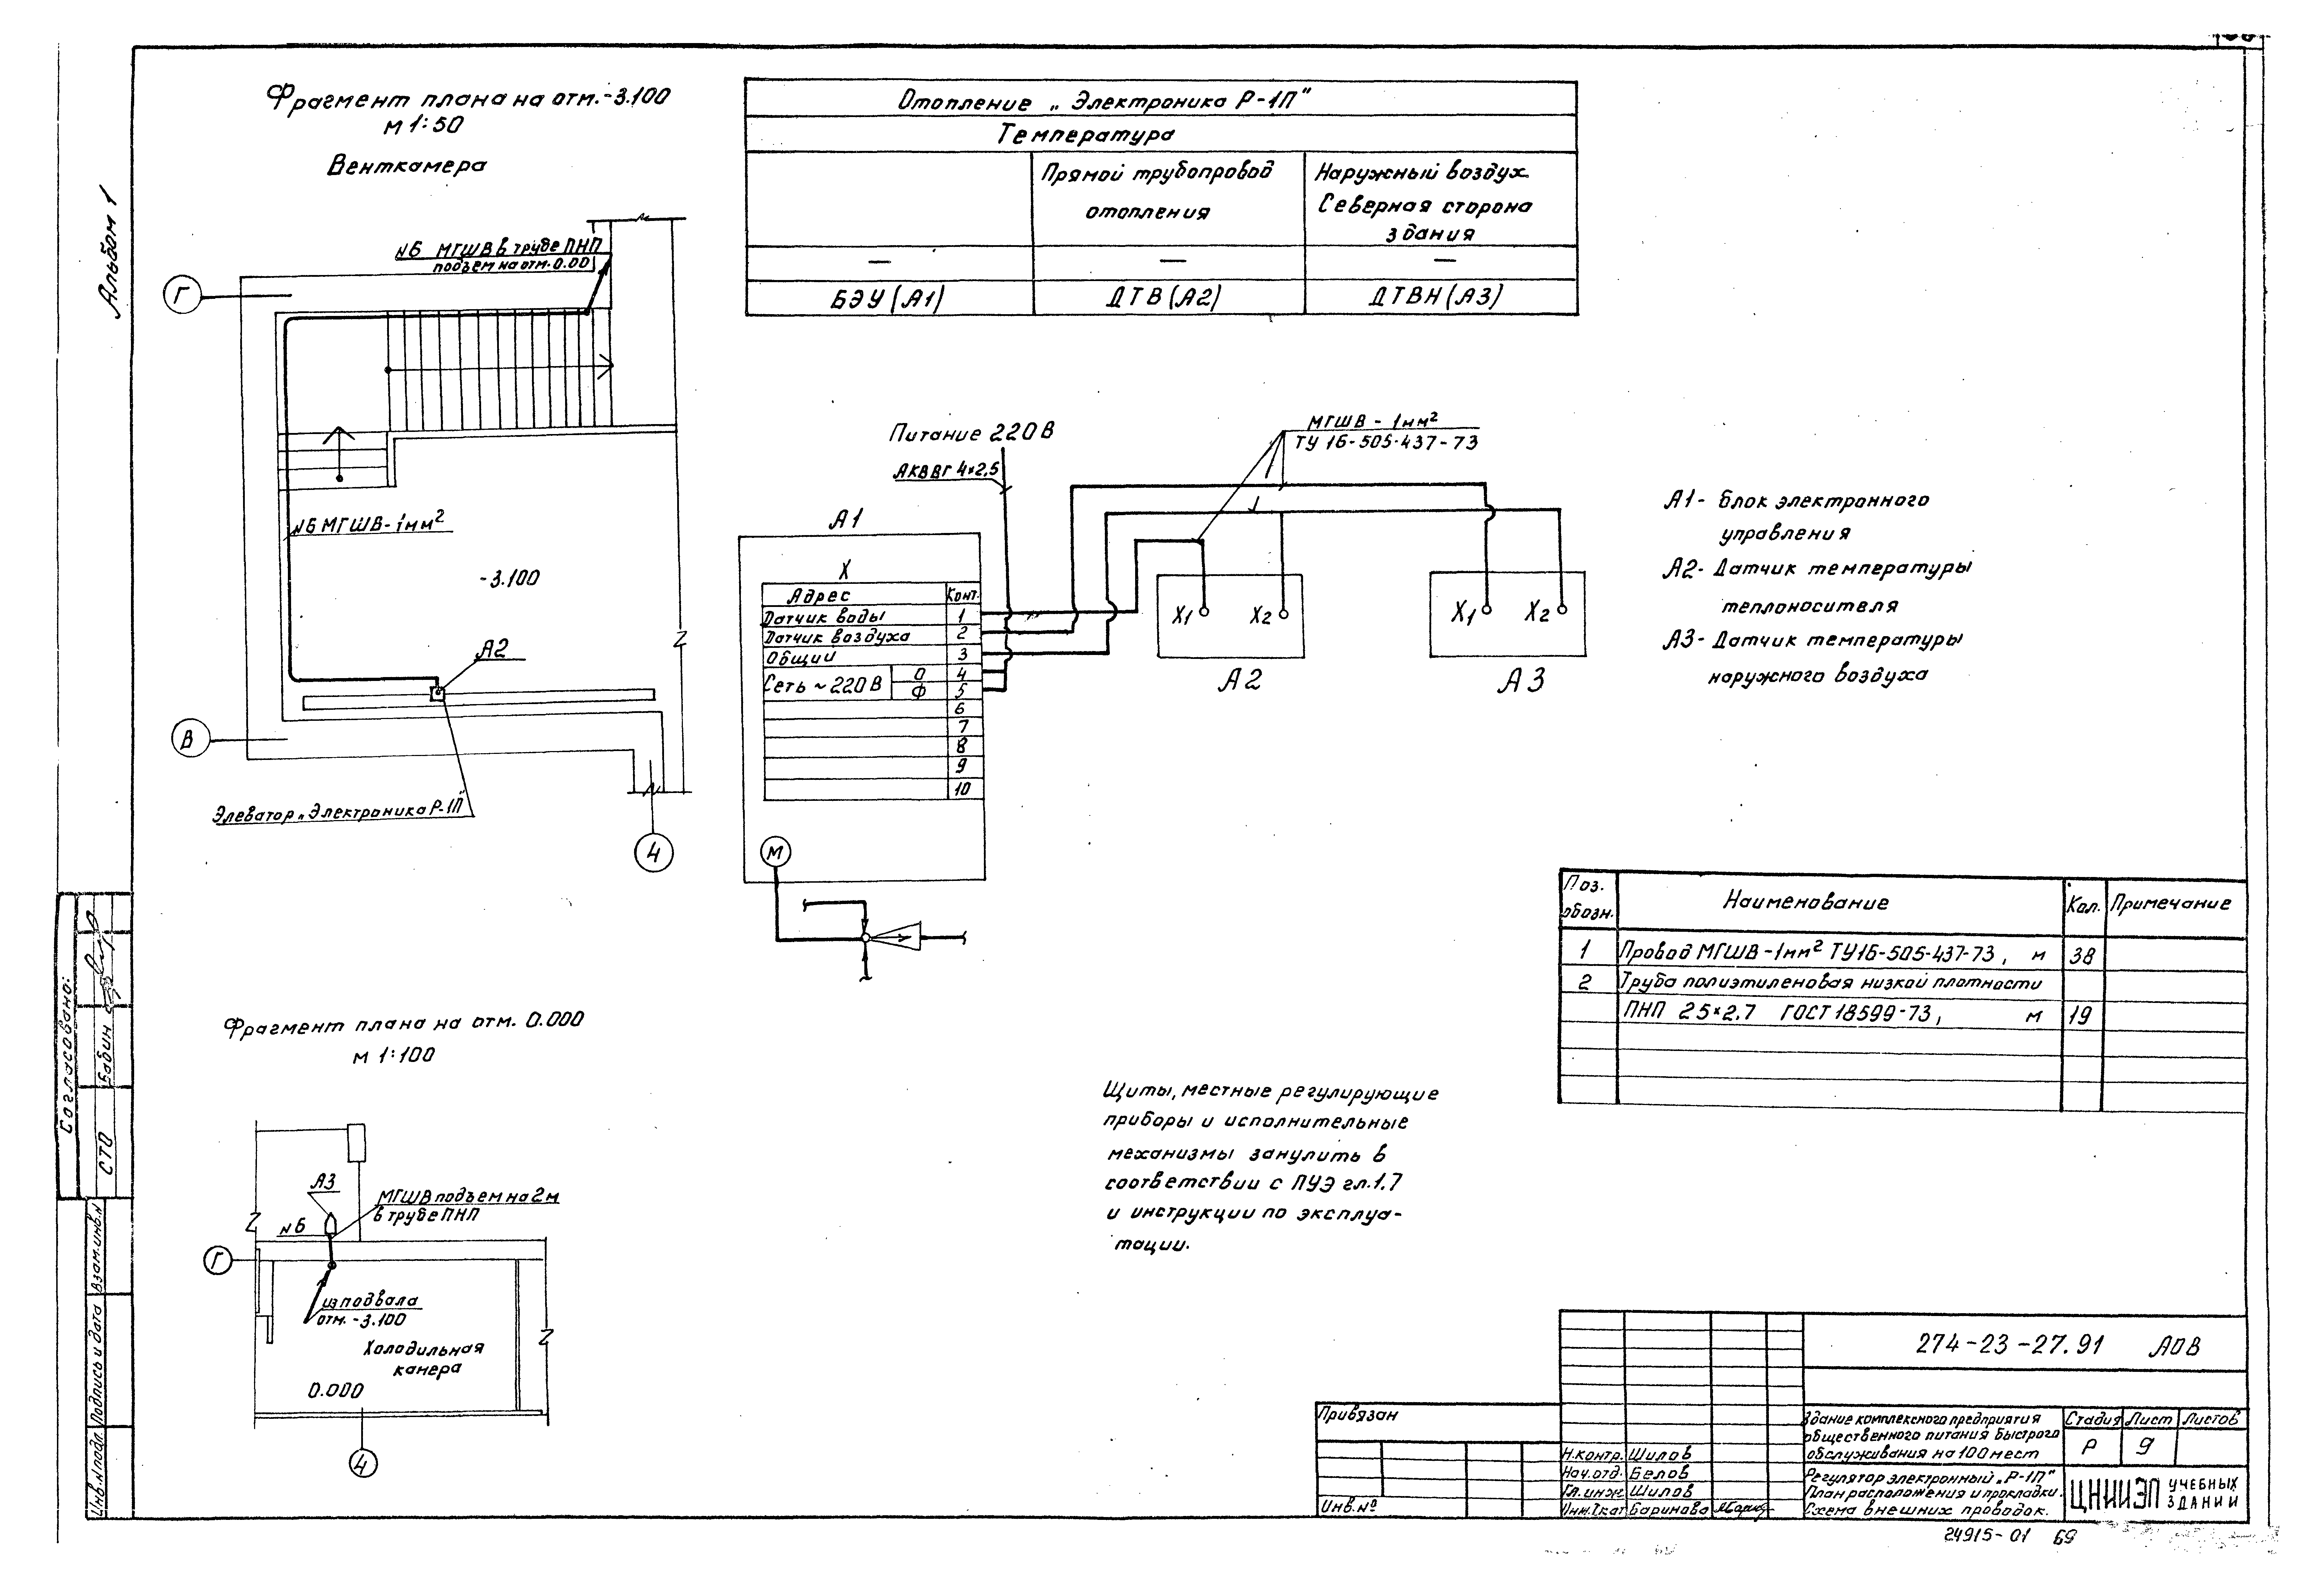 Альбом 1
Фрагмент плана на отм. -3.100
м 1:50
Венткамера
N6 МГШВ в трубе ПНП
подъем на отм. 0.00
Г
N6 МГШВ-1мм²
-3.100
А2
В
Элеватор „Электроника Р-1П"
4
Отопление „Электроника Р-1П"
Температура
Прямой трубопровод
отопления
Наружный воздух.
Северная сторона
здания
— — —
БЭУ (А1) ДТВ (А2) ДТВН (А3)
Питание 220 В
АКВВГ 4×2,5
МГШВ - 1мм²
ТУ 16-505.437-73
А1
X
Адрес Конт.
Датчик воды 1
Датчик воздуха 2
Общий 3
Сеть ~ 220 В О 4
Ф 5
6
7
8
9
10
М
X1 X2
А2
X1 X2
А3
А1- Блок электронного
управления
А2- Датчик температуры
теплоносителя
А3- Датчик температуры
наружного воздуха
Поз. обозн. Наименование Кол. Примечание
1 Провод МГШВ-1мм² ТУ16-505-437-73, м 38
2 Труба полиэтиленовая низкой плотности
ПНП 25×2,7 ГОСТ 18599-73, м 19
Фрагмент плана на отм. 0.000
м 1:100
А3
МГШВ подъем на 2м
в трубе ПНП
N6
Г
из подвала
отм. -3.100
Холодильная
камера
0.000
4
Щиты, местные регулирующие
приборы и исполнительные
механизмы занулить в
соответствии с ПУЭ гл.1.7
и инструкции по эксплуа-
тации.
Согласовано:
СТО Бабин
Взам.инв.N
Подпись и дата
Инв.N подл.
274-23-27.91 АОВ
Привязан
Инв.№
Н.контр. Шилов
Нач.отд. Белов
Гл.инж. Шилов
Инж.1кат Баринова
Здание комплексного предприятия
общественного питания быстрого
обслуживания на 100 мест
Стадия Лист Листов
Р 9
Регулятор электронный „Р-1П"
План расположения и прокладки.
Схема внешних проводок.
ЦНИИЭП УЧЕБНЫХ
ЗДАНИЙ
24915-01 69